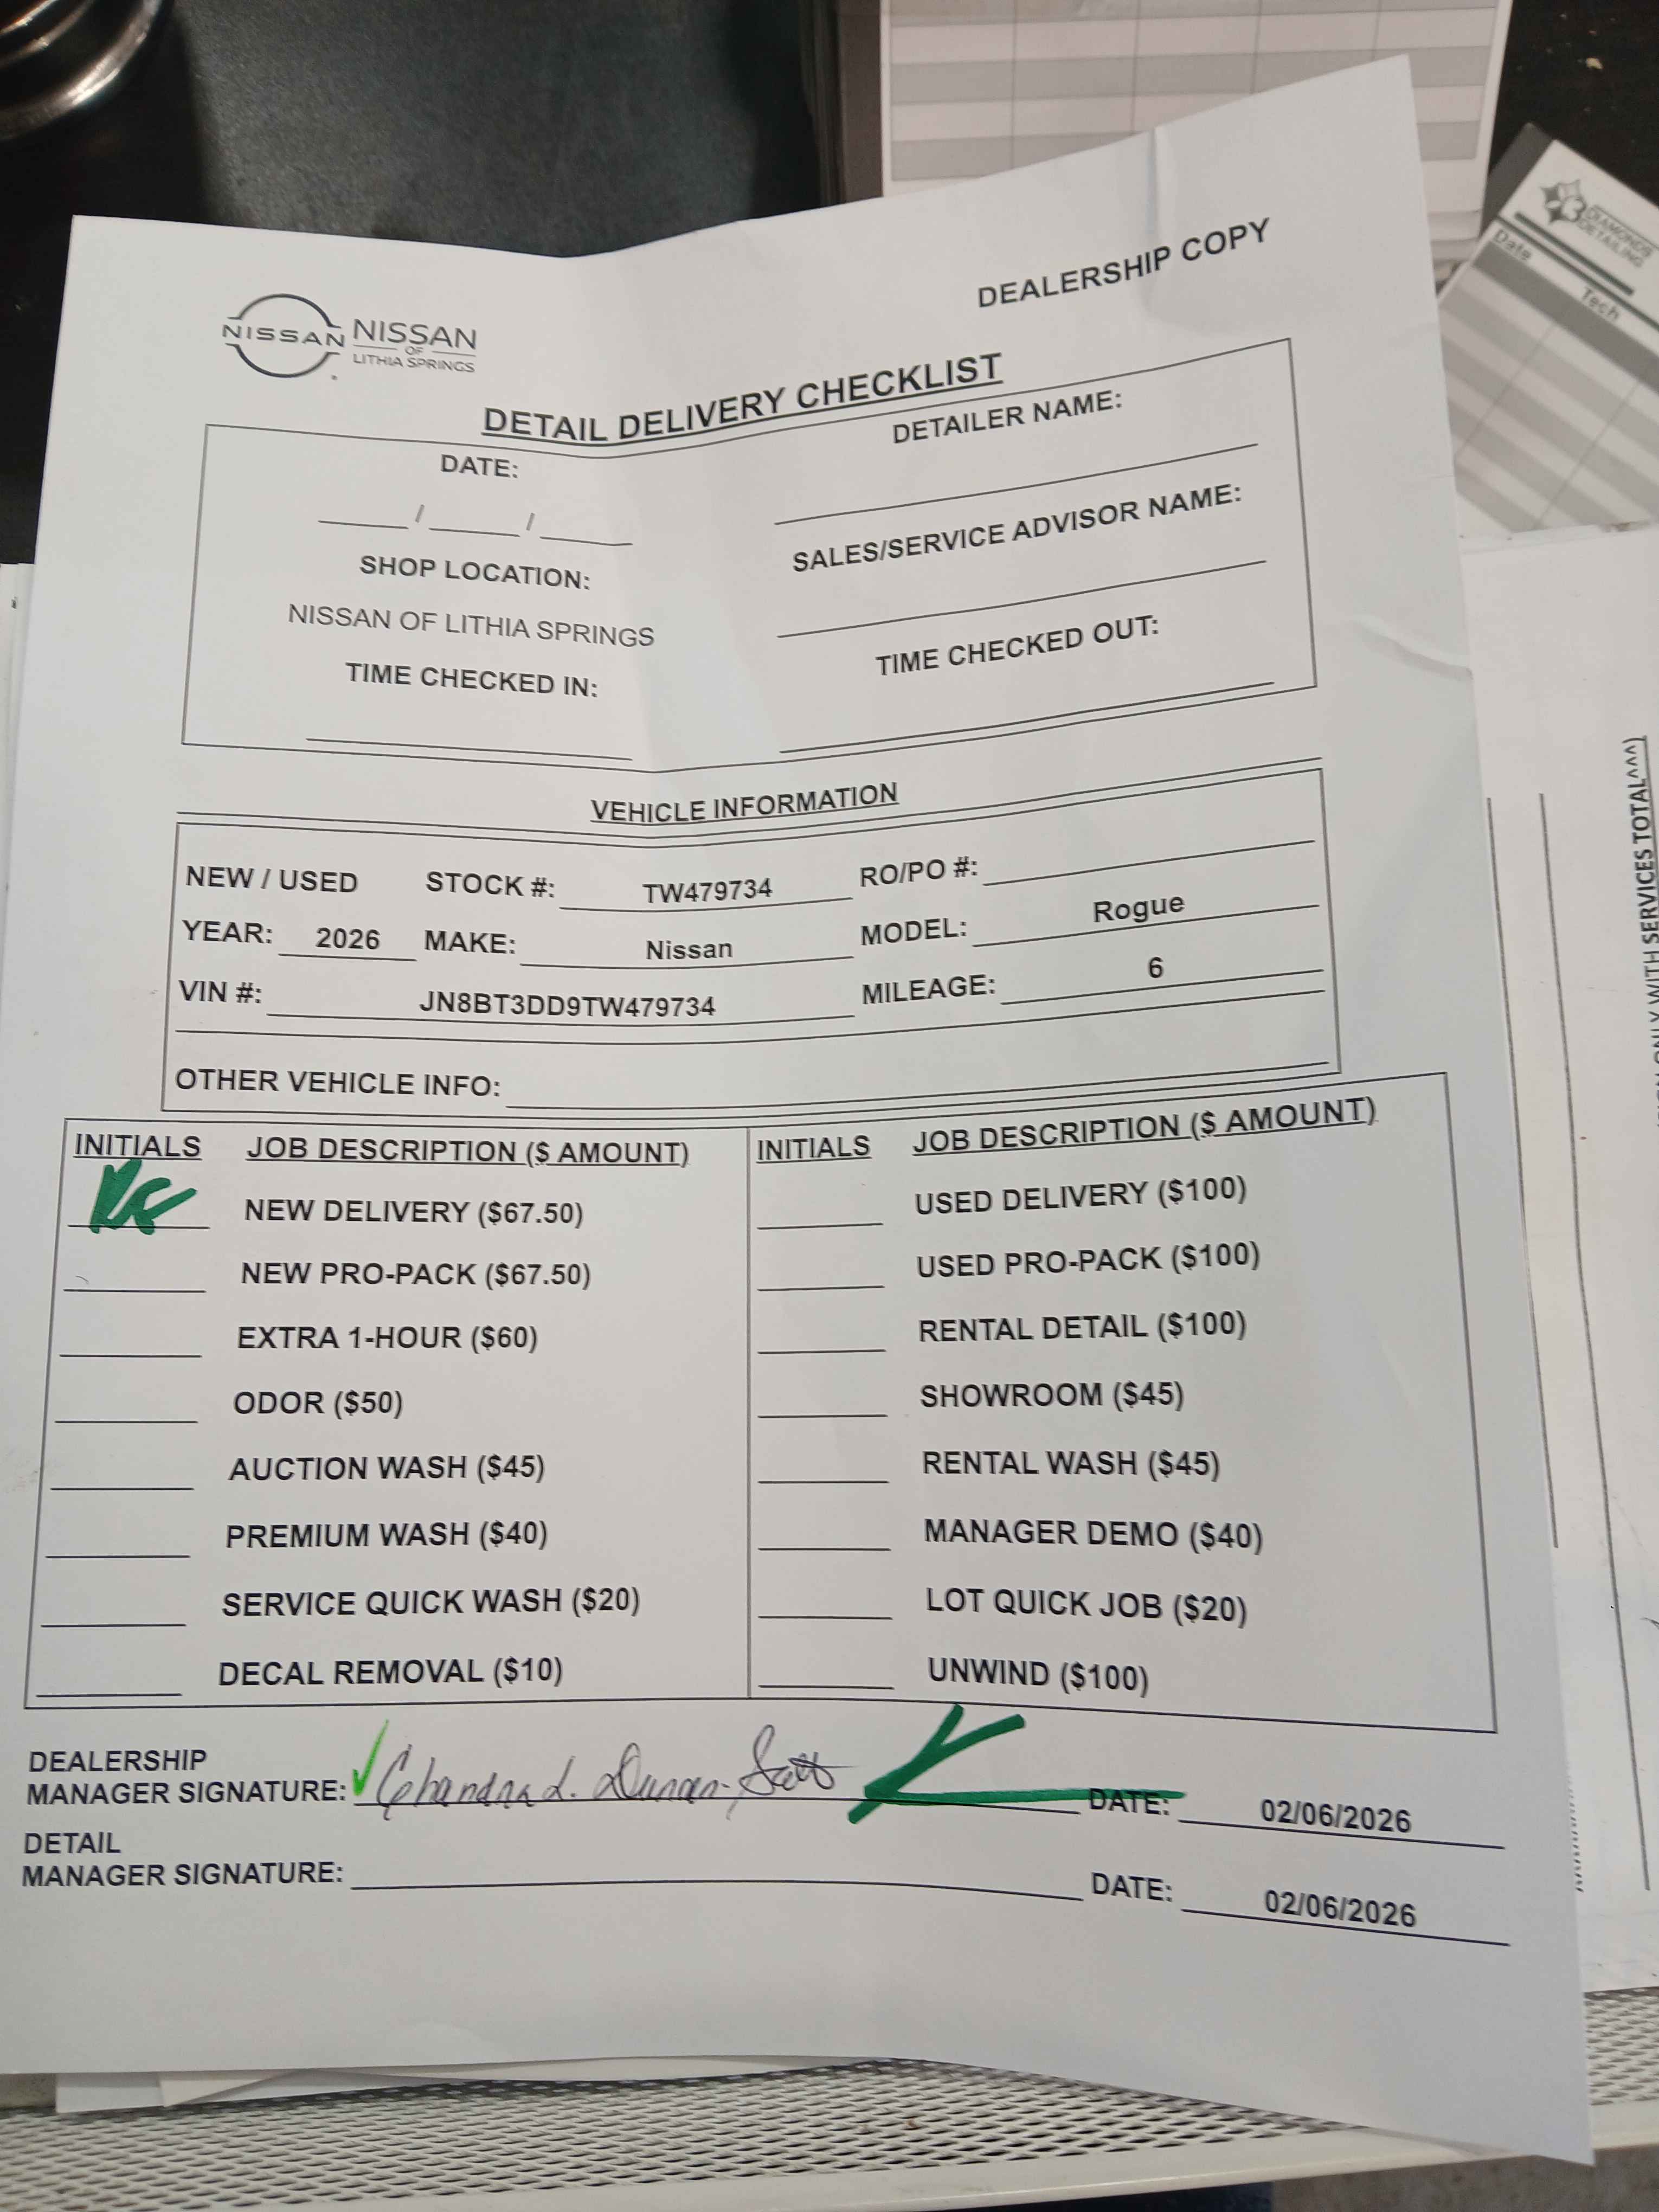 DEALERSHIP COPY
NISSAN NISSAN
OF
LITHIA SPRINGS
DETAIL DELIVERY CHECKLIST
DATE:
DETAILER NAME:
____/____/____
SHOP LOCATION:
SALES/SERVICE ADVISOR NAME:
NISSAN OF LITHIA SPRINGS
TIME CHECKED IN:
TIME CHECKED OUT:
VEHICLE INFORMATION
NEW / USED STOCK #: TW479734 RO/PO #:
YEAR: 2026 MAKE: Nissan MODEL: Rogue
VIN #: JN8BT3DD9TW479734 MILEAGE: 6
OTHER VEHICLE INFO:
INITIALS JOB DESCRIPTION ($ AMOUNT) INITIALS JOB DESCRIPTION ($ AMOUNT)
NEW DELIVERY ($67.50) USED DELIVERY ($100)
NEW PRO-PACK ($67.50) USED PRO-PACK ($100)
EXTRA 1-HOUR ($60) RENTAL DETAIL ($100)
ODOR ($50) SHOWROOM ($45)
AUCTION WASH ($45) RENTAL WASH ($45)
PREMIUM WASH ($40) MANAGER DEMO ($40)
SERVICE QUICK WASH ($20) LOT QUICK JOB ($20)
DECAL REMOVAL ($10) UNWIND ($100)
DEALERSHIP
MANAGER SIGNATURE: ✓ Chandra L. Duncan-Scott DATE: 02/06/2026
DETAIL
MANAGER SIGNATURE: DATE: 02/06/2026
DIAMONDS
DETAILING
Date Tech
ONLY WITH SERVICES TOTAL^^^)